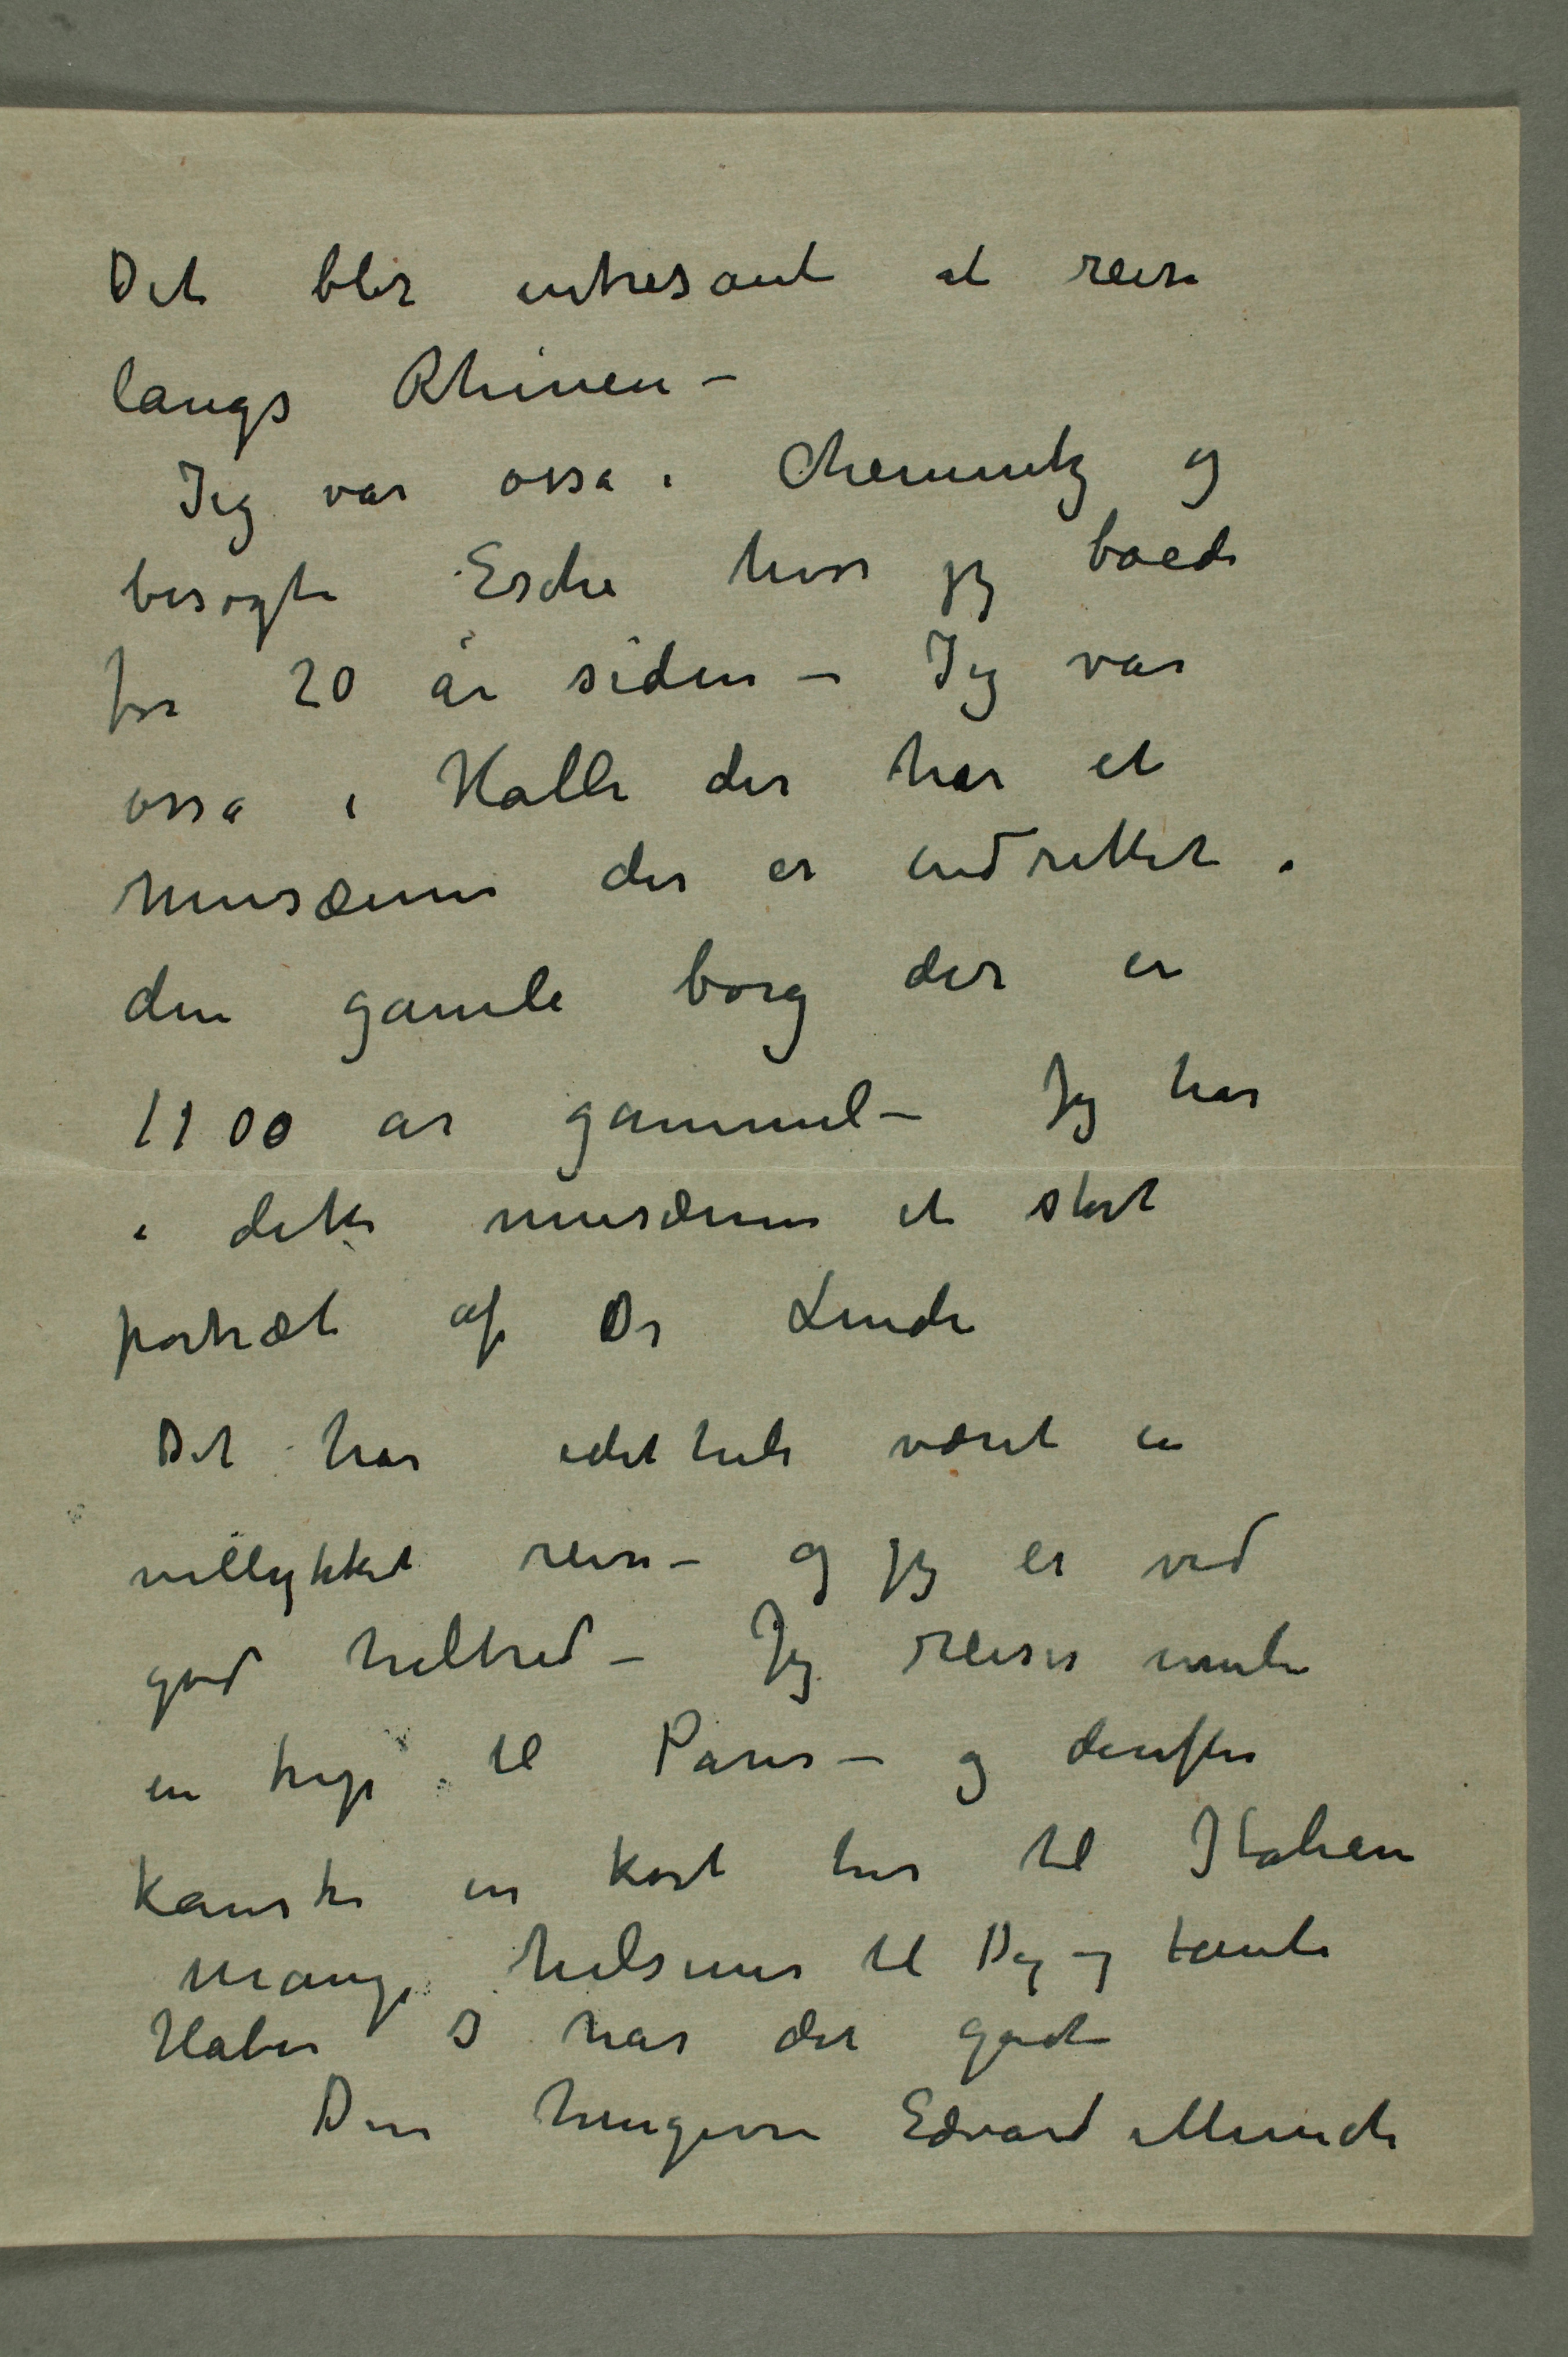 Det blir intresant at reise
langs Rhinen –
Jeg var osså i Chemnitz og
besøgte Esche hvor jeg boede
for 20 år siden – Jeg var
osså i Halle der har et
musæum der er indrettet i
den gamle borg der er
1100 år gammel – Jeg har
i dette musæum et stort
portræt af Dr Linde
Det har idethele været en
vellykket reise – og jeg er ved
god helbred – Jeg reiser
en trip til Paris – og derefter
kanske en kort tur til Italien
Mange hilsener til Dig og tante
Håber I har det godt
Din hengivne Edvard Munch